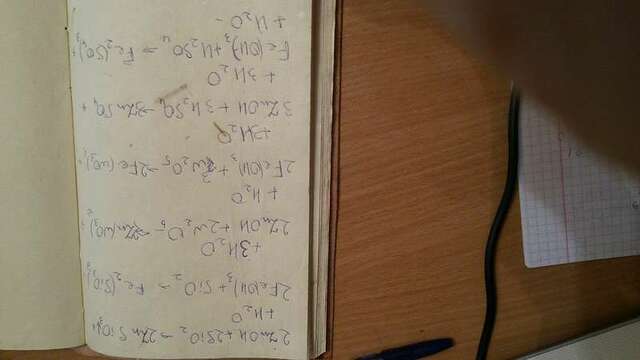 2ZnOH + 2SiO2 → 2ZnSiO3 +
+ H2O
2Fe(OH)3 + SiO2 → Fe2(SiO3)3 +
+ 3H2O
2ZnOH + 2N2O5 → 2Zn(NO3)2 +
+ H2O
2Fe(OH)3 + 3N2O5 → 2Fe(NO3)3 +
+ 3H2O
3ZnOH + 3H2SO4 → 3ZnSO4 +
+ 3H2O
Fe(OH)3 + H2SO4 → Fe2(SO4)3 +
+ H2O